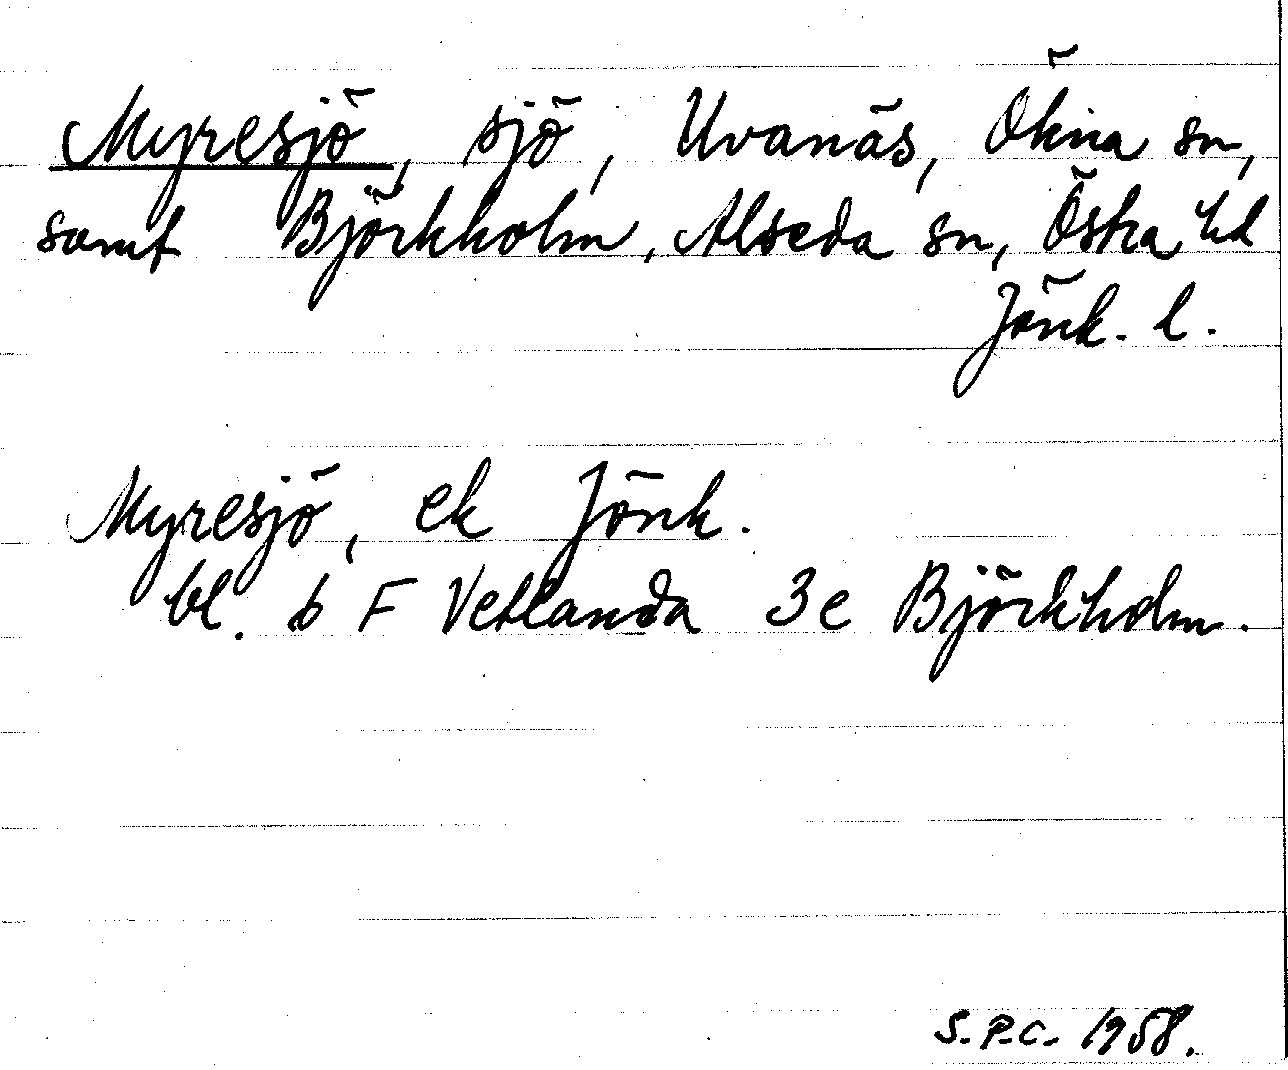 Myresjö, sjö, Uvanäs, Ökna sn,
samt Björkholm, Alseda sn, Östra hd
Jönk. l.
Myresjö, ek Jönk.
bl. 6 F Vetlanda 3e Björkholm.
S.P.C. 1958.